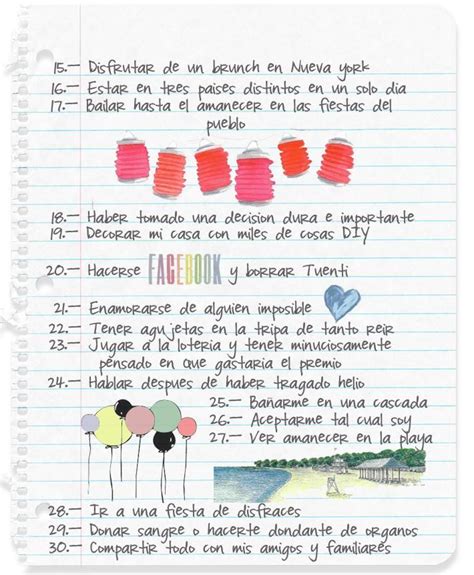 15.- Disfrutar de un brunch en Nueva york
16.- Estar en tres paises distintos en un solo dia
17.- Bailar hasta el amanecer en las fiestas del
pueblo
18.- Haber tomado una decision dura e importante
19.- Decorar mi casa con miles de cosas DIY
20.- Hacerse FACEBOOK y borrar Tuenti
21.- Enamorarse de alguien imposible
22.- Tener agujetas en la tripa de tanto reir
23.- Jugar a la loteria y tener minuciosamente
pensado en que gastaria el premio
24.- Hablar despues de haber tragado helio
25.- Bañarme en una cascada
26.- Aceptarme tal cual soy
27.- Ver amanecer en la playa
28.- Ir a una fiesta de disfraces
29.- Donar sangre o hacerte dondante de organos
30.- Compartir todo con mis amigos y familiares